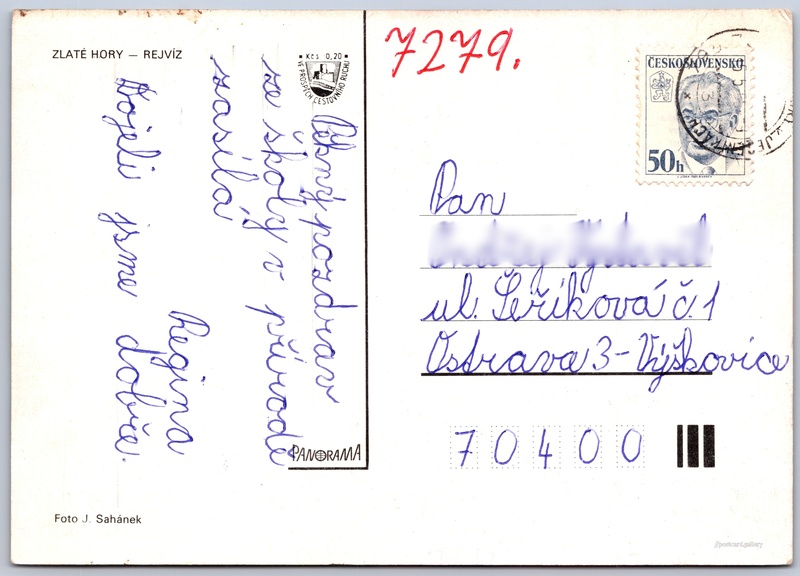 ZLATÉ HORY — REJVÍZ
Kčs 0,20
VE PROSPĚCH CESTOVNÍHO RUCHU
Pěkný pozdrav
ze školy v přírodě
zasílá
Regina
Dojeli jsme dobře.
PANORAMA
Foto J. Sahánek
7279.
ČESKOSLOVENSKO
50h
Pan
ul. Šeříková č. 1
Ostrava 3 - Výškovice
70400
//postcard.gallery